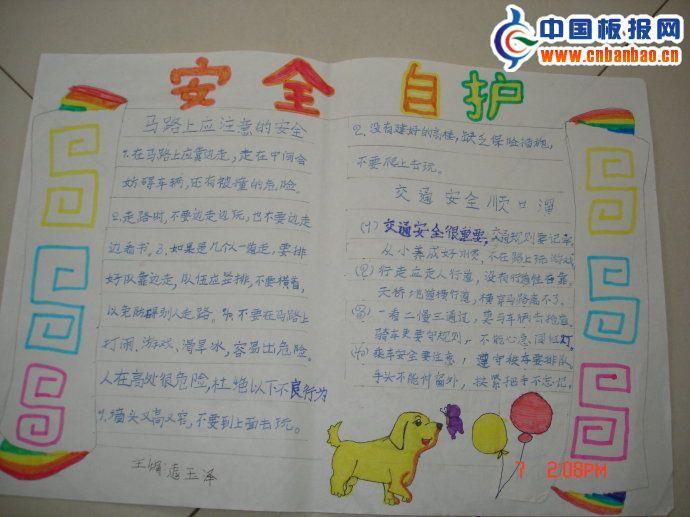 中国板报网
www.cnbanbao.cn
安全自护
马路上应注意的安全
1.在马路上应靠边走,走在中间会
妨碍车辆,还有被撞的危险。
2.走路时,不要边走边玩,也不要边走
边看书。3.如果是几个人一道走,要排
好队靠边走,队伍应竖排,不要横着,
以免妨碍别人走路。4.不要在马路上
打闹、游戏、滑旱冰,容易出危险。
人在高处很危险,杜绝以下不良行为
1.墙头又高又窄,不要到上面去玩。
王 玉泽
2.没有建好的高楼,缺乏保险措施,
不要爬上去玩。
交通安全顺口溜
(1)交通安全很重要,交通规则要记牢,
从小养成好习惯,不在路上玩游戏。
(2)行走应走人行道,没有行道往右靠,
天桥地道横行道,横穿马路离不了。
(3)一看二慢三通过,莫与车辆去抢道。
骑车更要守规则,不能心急闯红灯。
(4)乘车安全要注意,遵守乘车要排队,
手头不能伸窗外,扶紧把手不忘记。
7 2:08PM